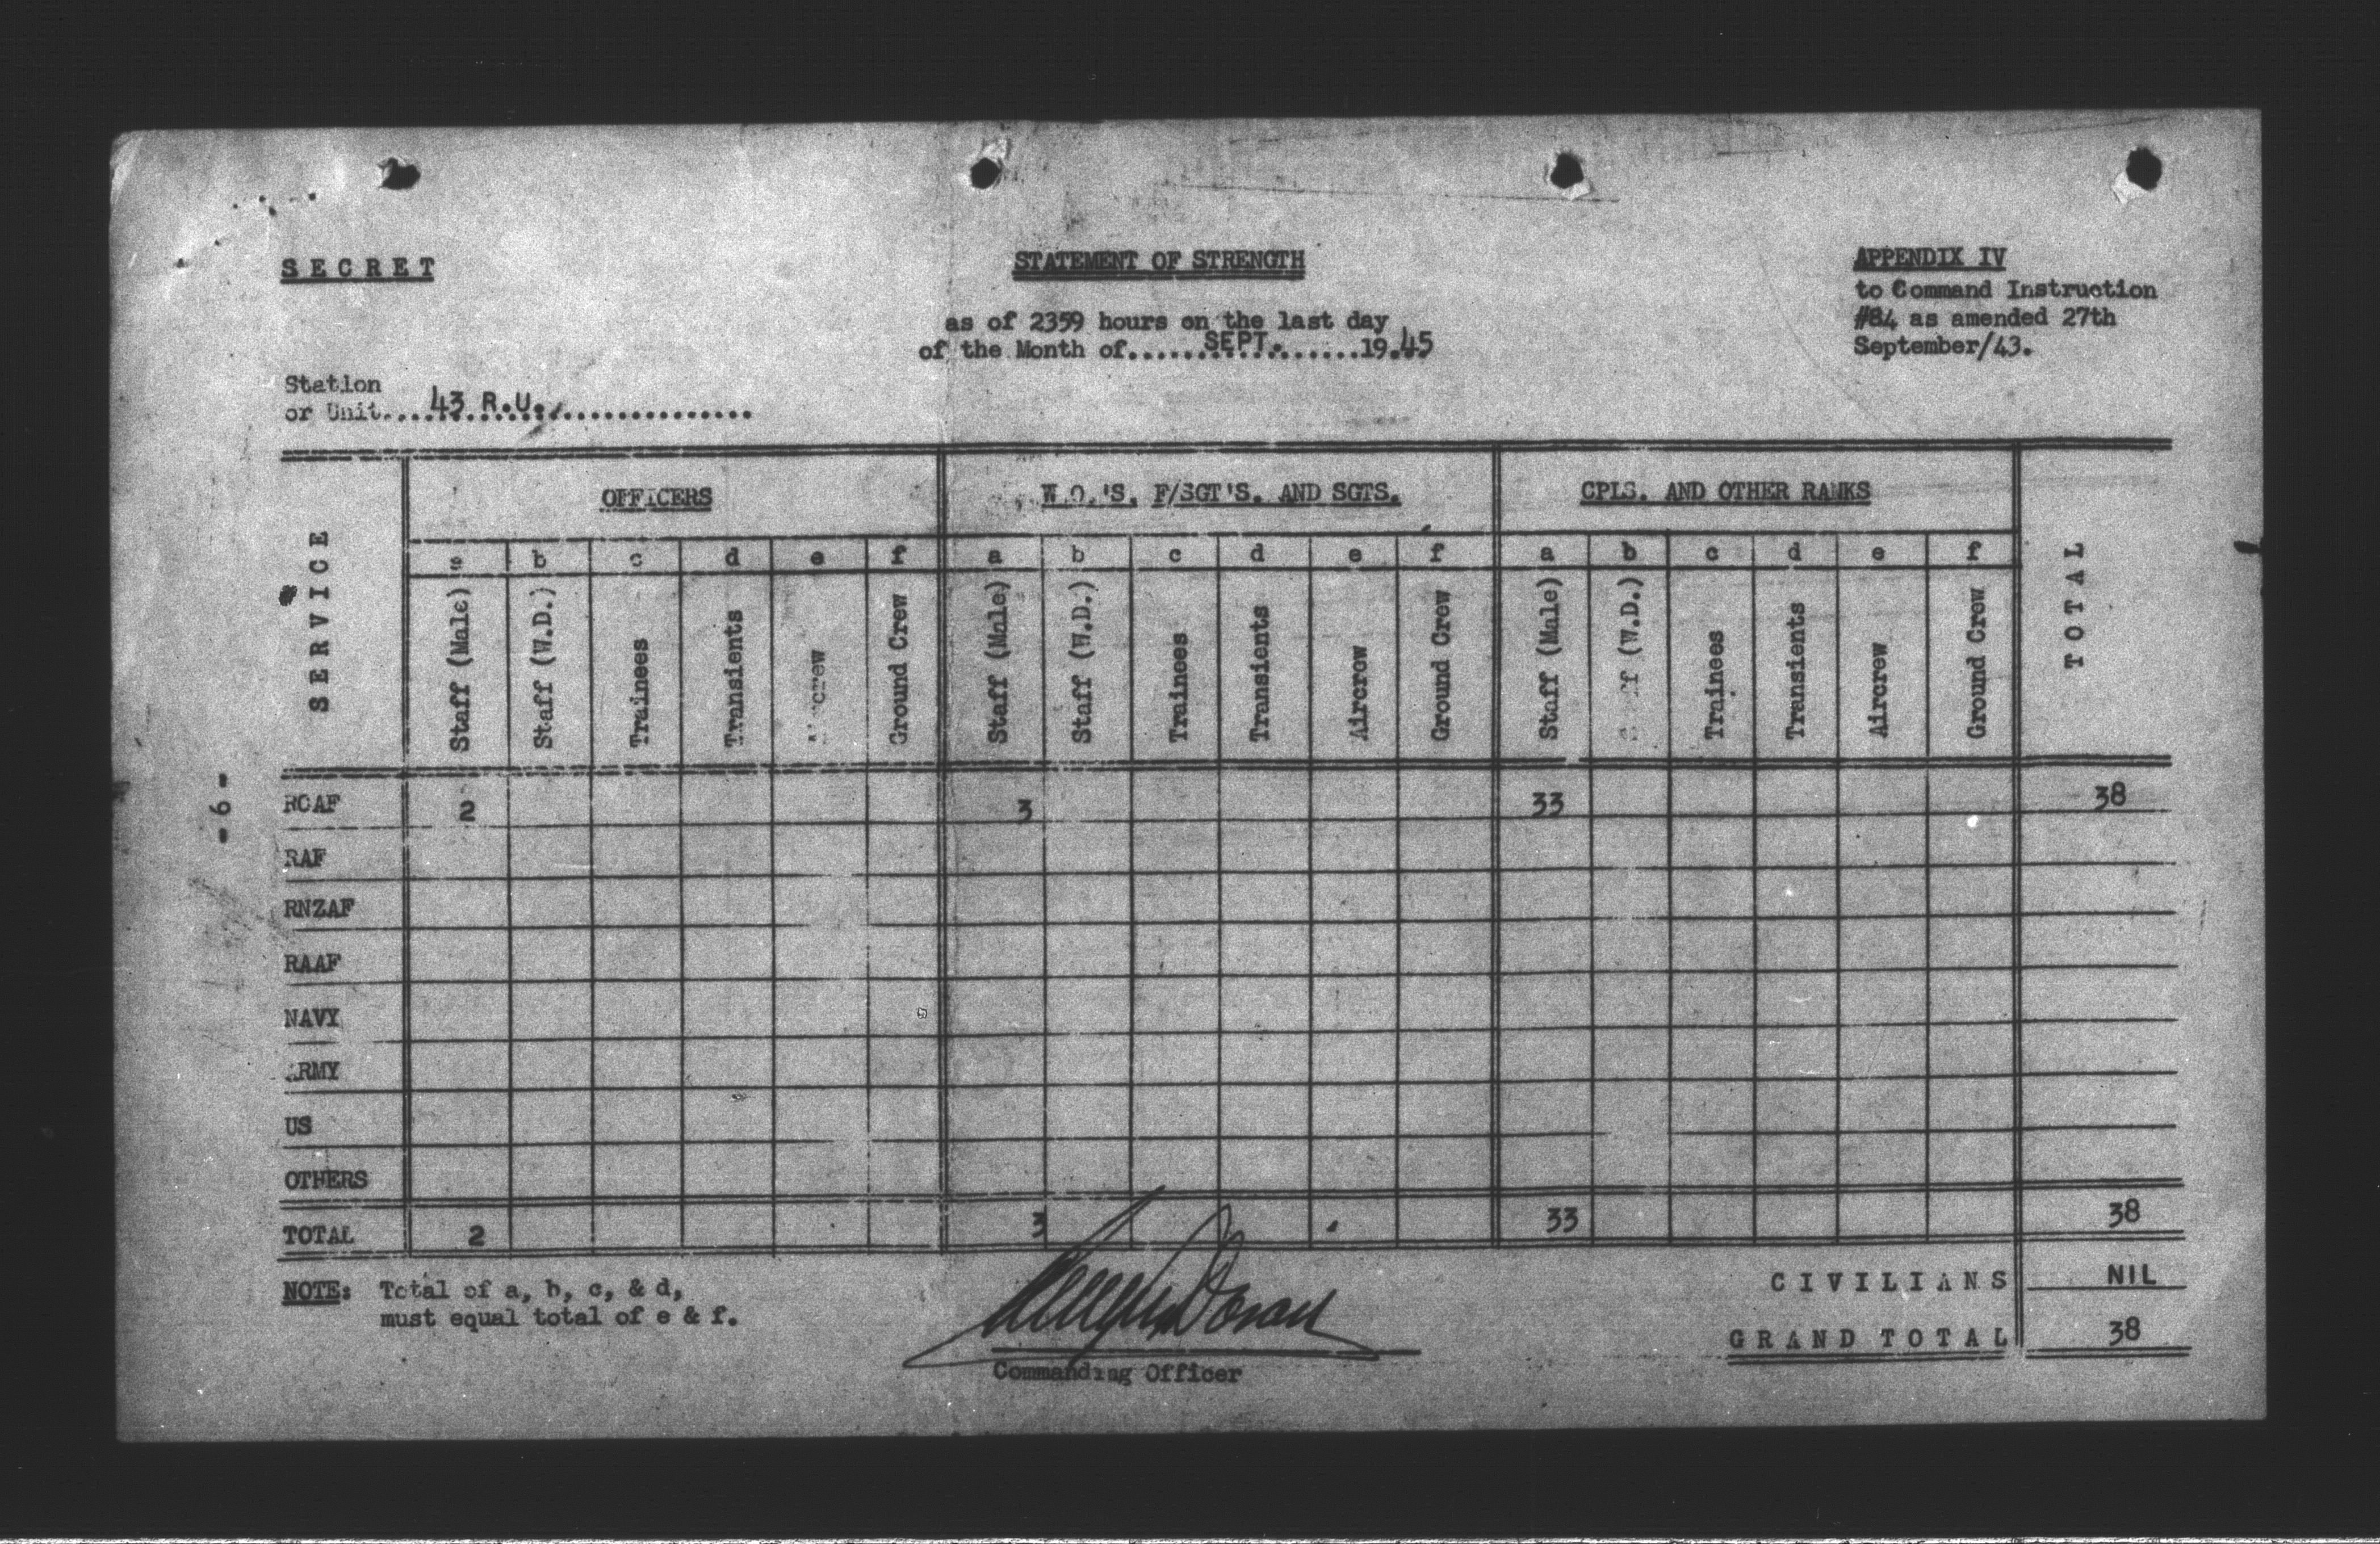 SECRET
STATEMENT OF STRENGTH
APPENDIX IV
to Command Instruction
#84 as amended 27th
September/43.
as of 2359 hours on the last day
of the Month of......SEPT.......19.45
Station
or Unit....43 R.U.................
SERVICE
OFFICERS
W.O.'S. F/SGT'S. AND SGTS.
CPLS. AND OTHER RANKS
TOTAL
a b c d e f a b c d e f a b c d e f
Staff (Male) Staff (W.D.) Trainees Transients Aircrew Ground Crew Staff (Male) Staff (W.D.) Trainees Transients Aircrew Ground Crew Staff (Male) Staff (W.D.) Trainees Transients Aircrew Ground Crew
-6-
RCAF 2 3 33 38
RAF
RNZAF
RAAF
NAVY
ARMY
US
OTHERS
TOTAL 2 3 33 38
NOTE: Total of a, b, c, & d,
must equal total of e & f.
CIVILIANS NIL
GRAND TOTAL 38
Commanding Officer